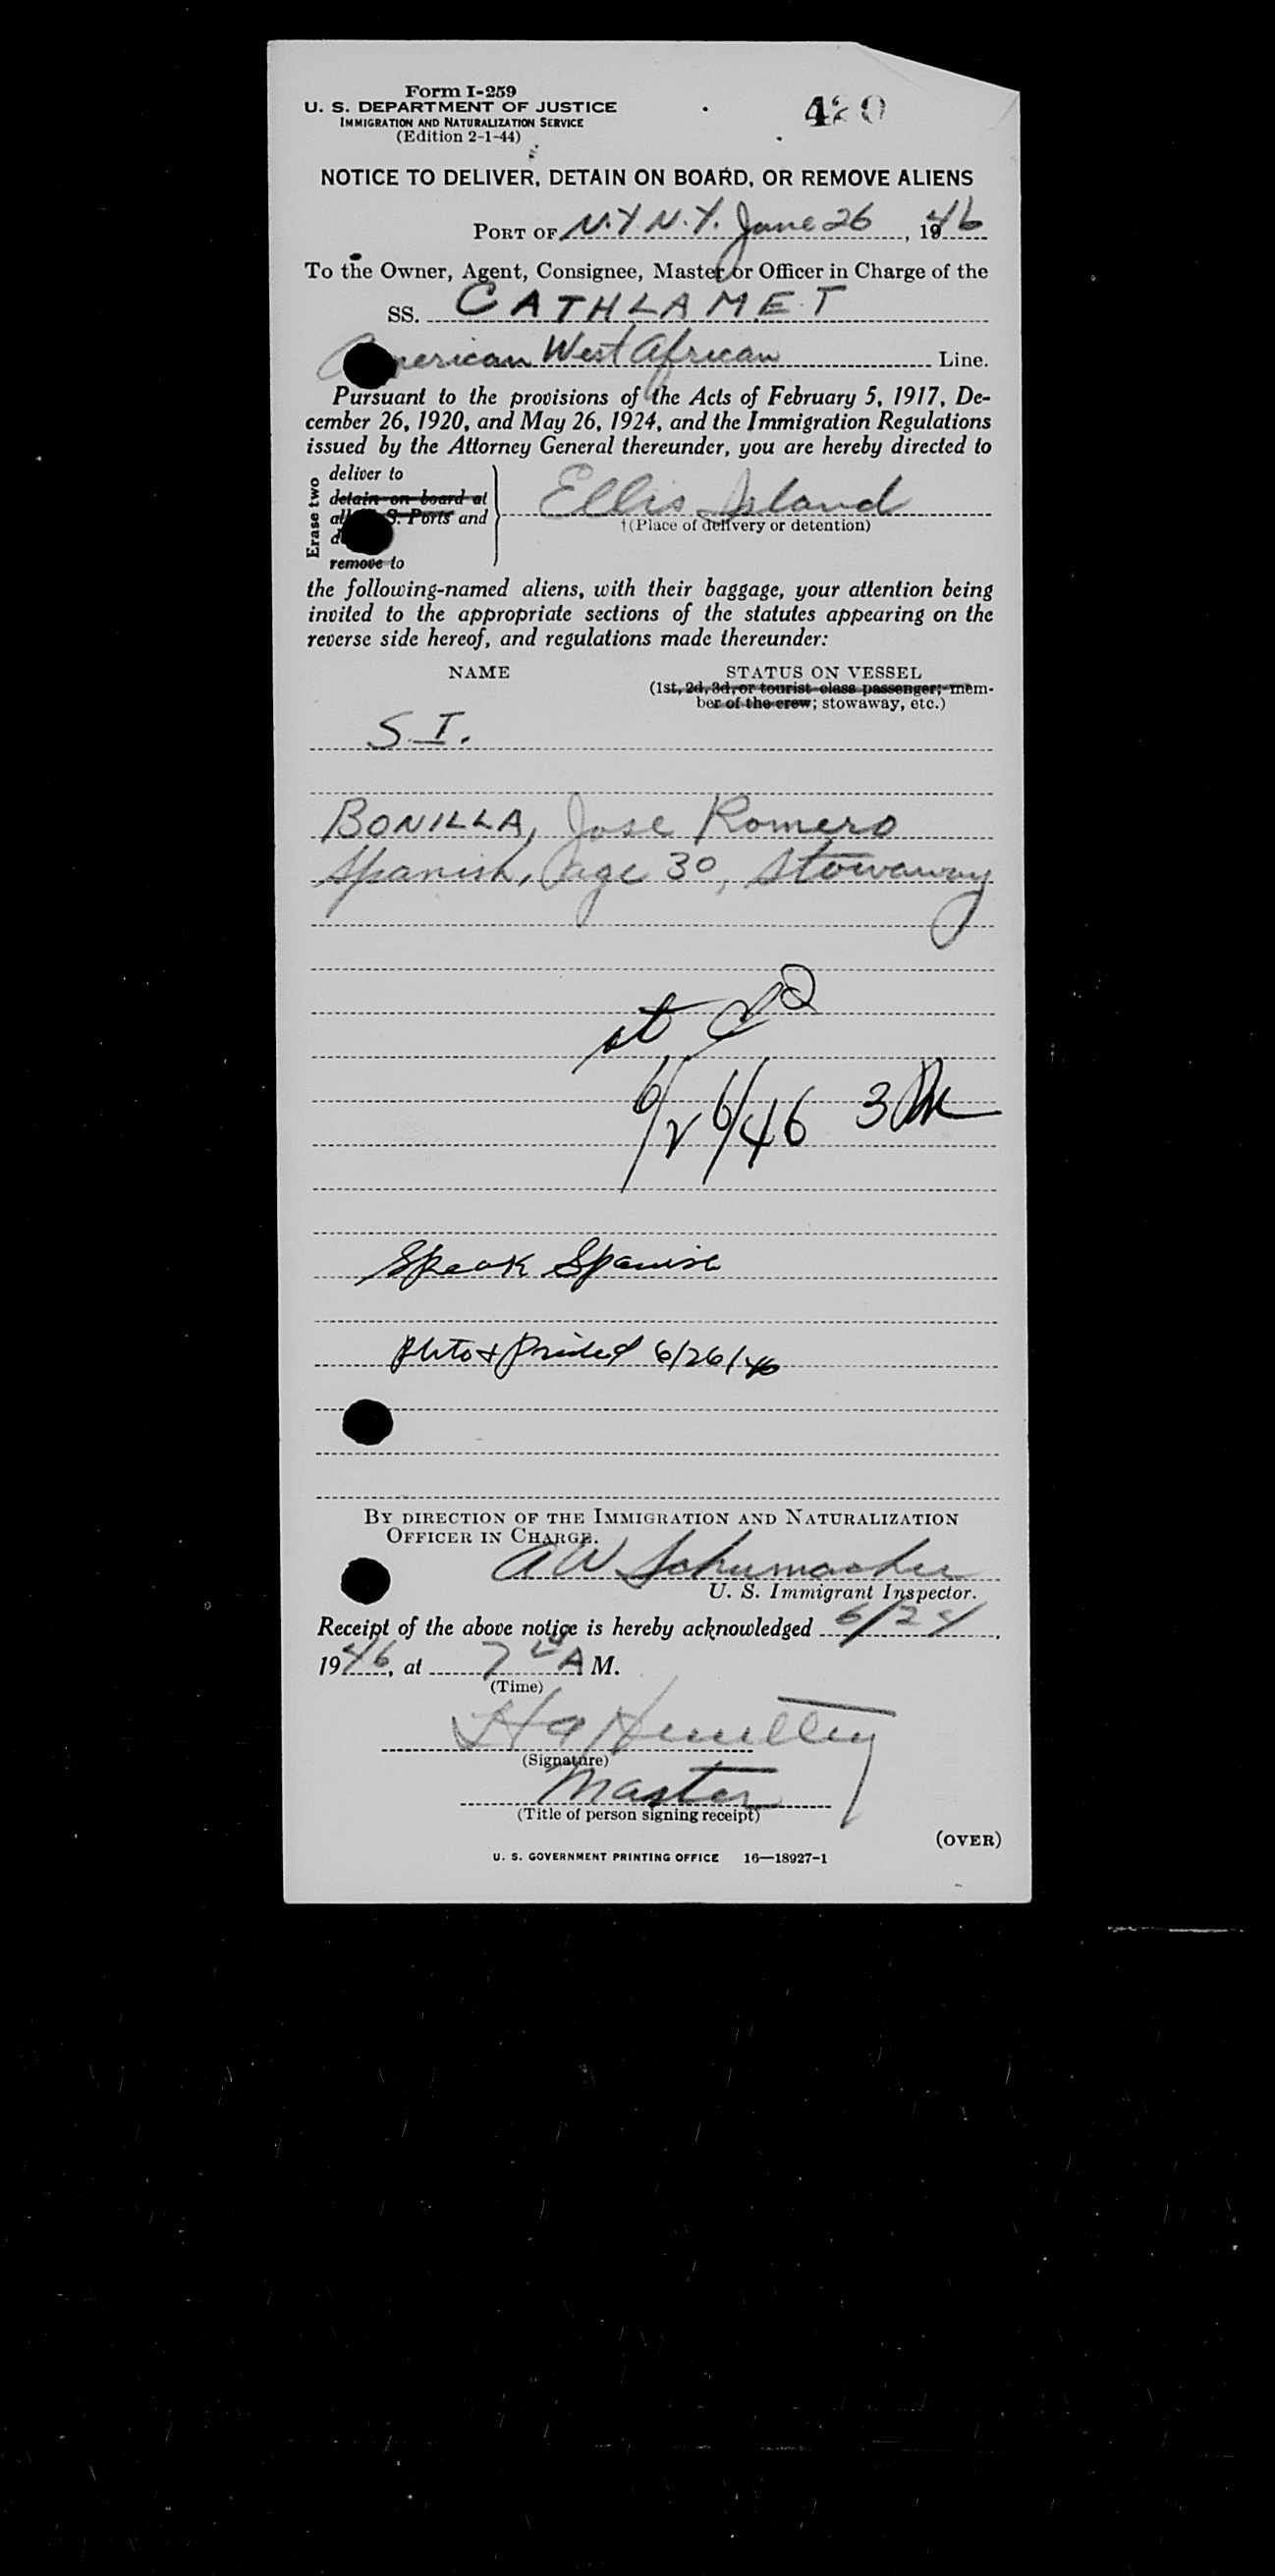 Form I-259
U. S. DEPARTMENT OF JUSTICE
IMMIGRATION AND NATURALIZATION SERVICE
(Edition 2-1-44)
420
NOTICE TO DELIVER, DETAIN ON BOARD, OR REMOVE ALIENS
PORT OF N.Y. N.Y. June 26, 1946
To the Owner, Agent, Consignee, Master or Officer in Charge of the
SS. CATHLAMET
American West African Line.
Pursuant to the provisions of the Acts of February 5, 1917, De-
cember 26, 1920, and May 26, 1924, and the Immigration Regulations
issued by the Attorney General thereunder, you are hereby directed to
Erase two
deliver to
detain on board at
all U. S. Ports and
remove to
Ellis Island
†(Place of delivery or detention)
the following-named aliens, with their baggage, your attention being
invited to the appropriate sections of the statutes appearing on the
reverse side hereof, and regulations made thereunder:
NAME
STATUS ON VESSEL
(1st, 2d, 3d, or tourist class passenger; mem-
ber of the crew; stowaway, etc.)
S.I.
BONILLA, Jose Romero
Spanish, age 30, Stowaway
at
6/26/46 3 PM
Speak Spanish
Photo & Printed 6/26/46
BY DIRECTION OF THE IMMIGRATION AND NATURALIZATION
OFFICER IN CHARGE.
A W Schumacher
U. S. Immigrant Inspector.
Receipt of the above notice is hereby acknowledged 6/24,
1946, at 7 A M.
(Time)
(Signature)
Master
(Title of person signing receipt)
(OVER)
U. S. GOVERNMENT PRINTING OFFICE 16—18927-1